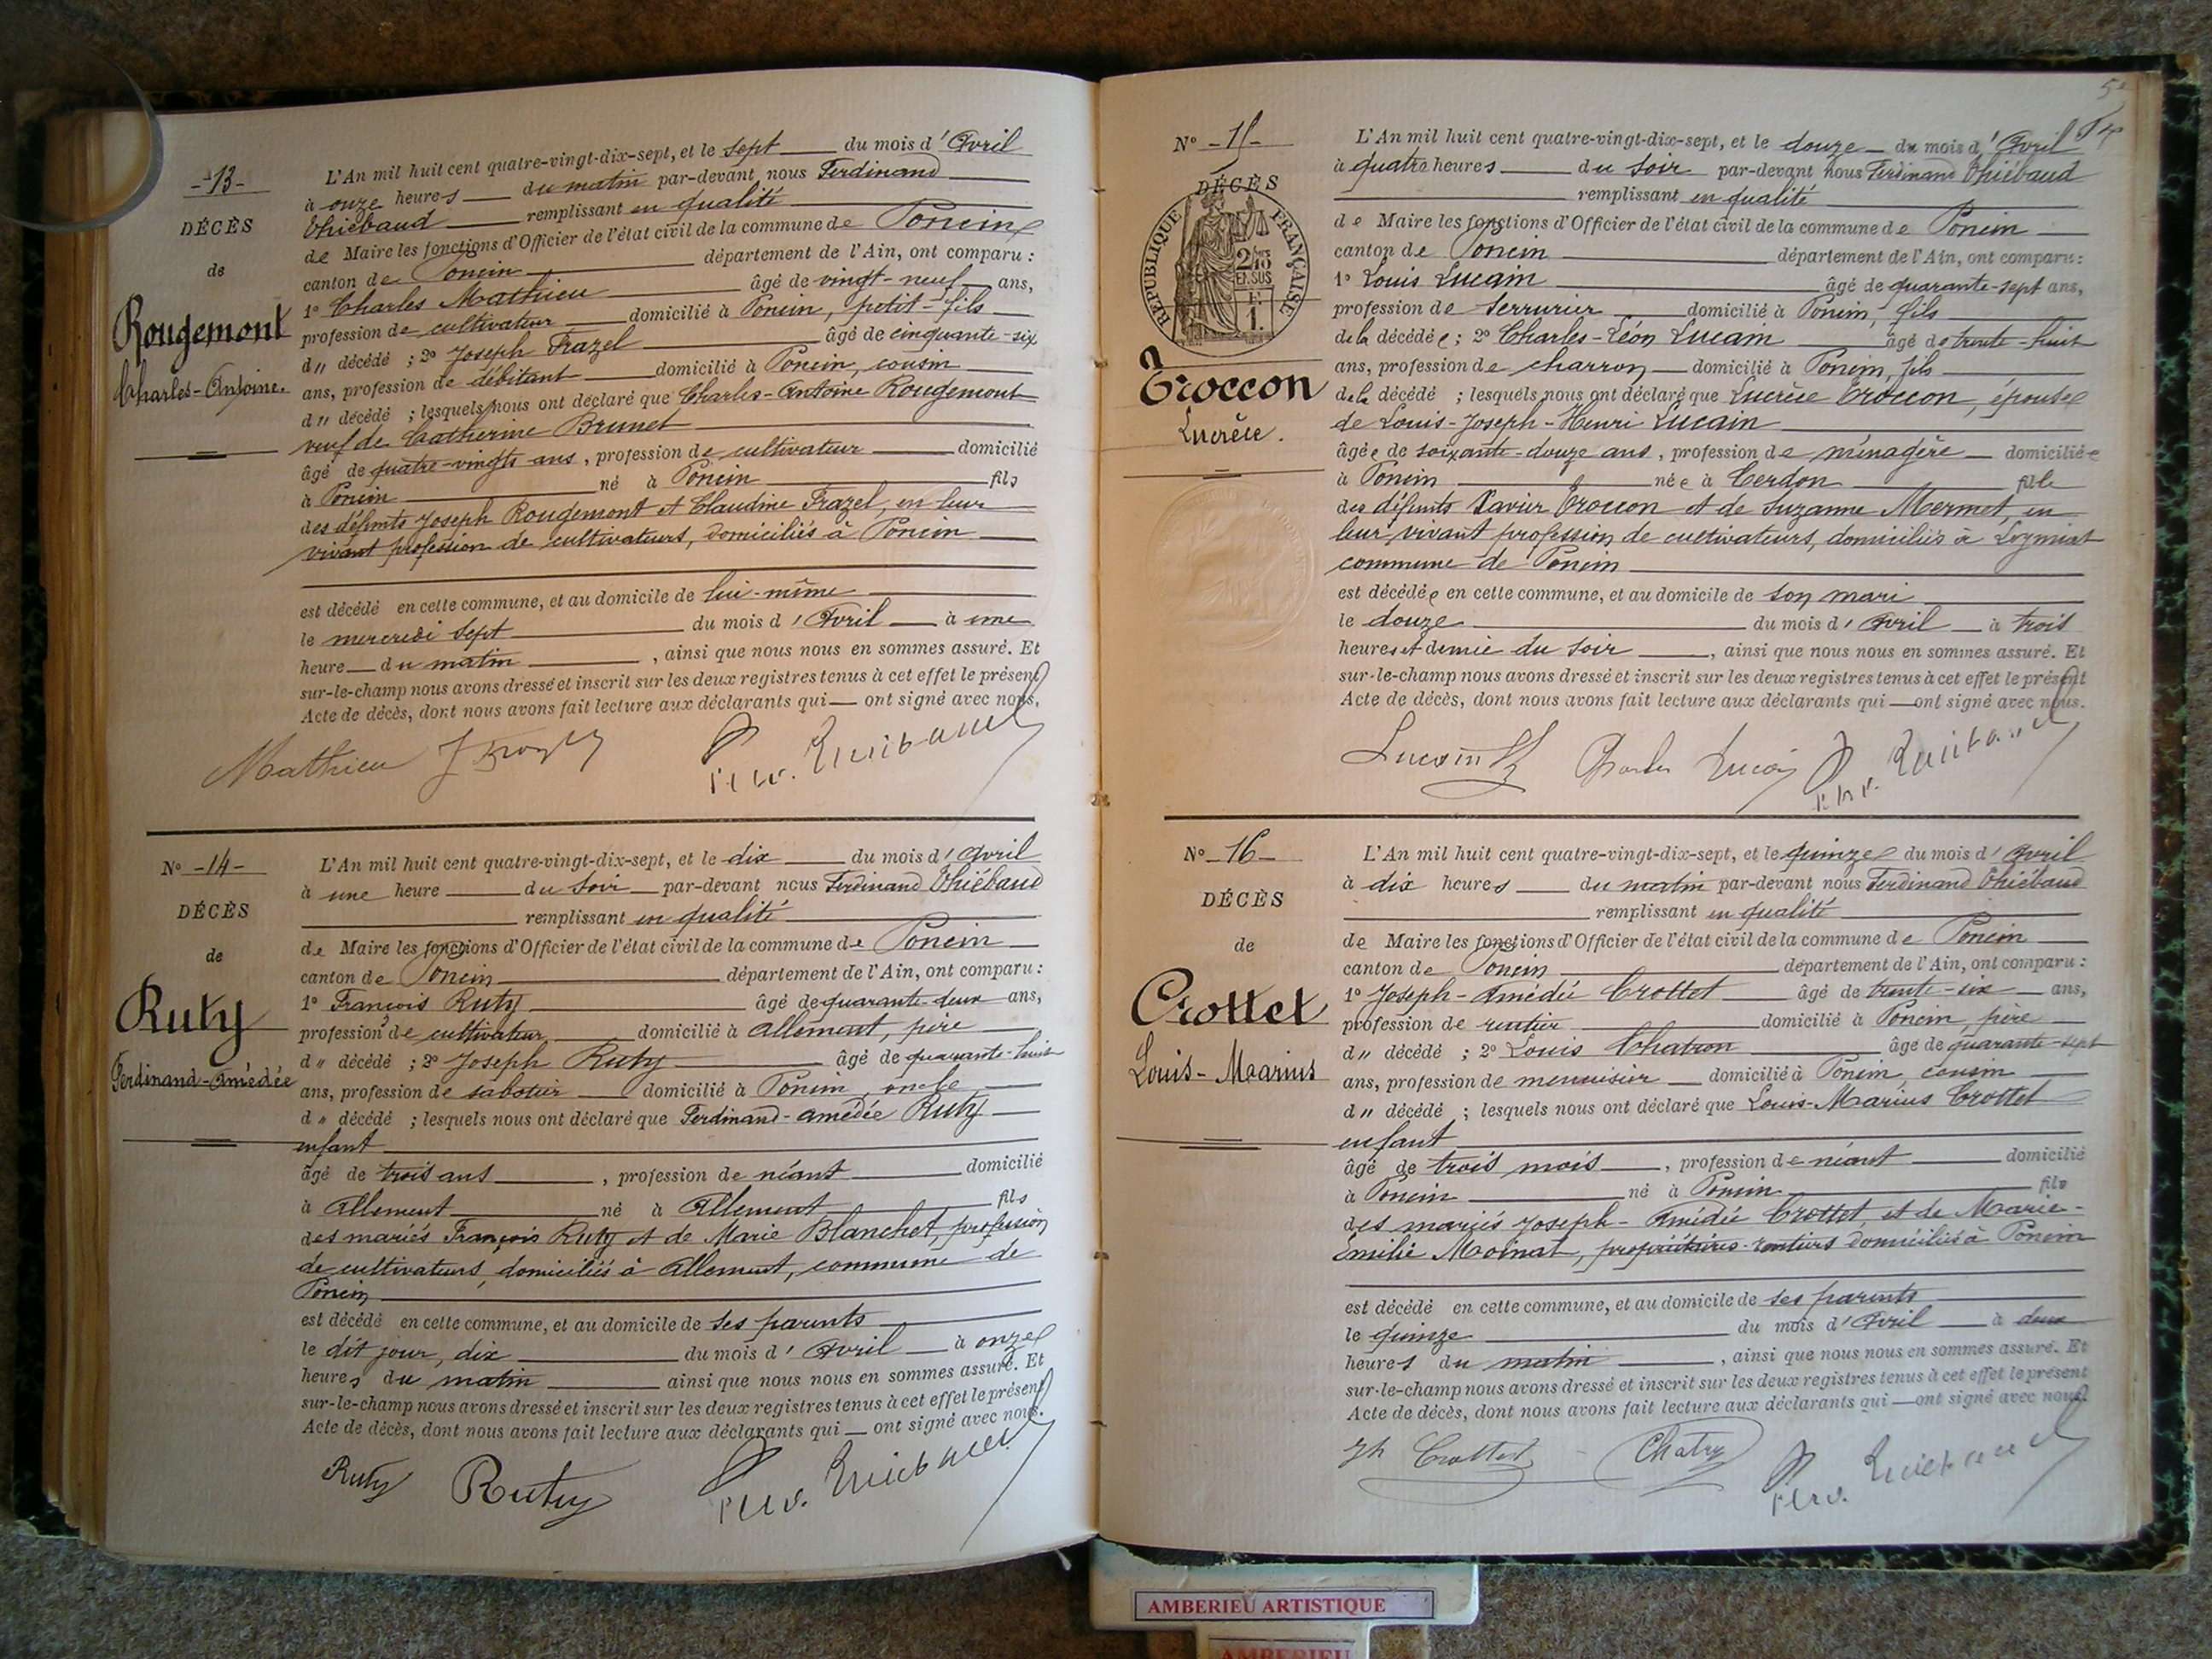 -13-
DÉCÈS
de
Rougemont
Charles-Antoine.
L'An mil huit cent quatre-vingt-dix-sept, et le sept du mois d'Avril
à onze heures du matin par-devant nous Ferdinand
Thiébaud remplissant en qualité
de Maire les fonctions d'Officier de l'état civil de la commune de Poncin
canton de Poncin département de l'Ain, ont comparu :
1° Charles Mathieu âgé de vingt-neuf ans,
profession de cultivateur domicilié à Poncin, petit-fils
d" décédé ; 2° Joseph Frazel âgé de cinquante-six
ans, profession de débitant domicilié à Poncin, cousin
d" décédé ; lesquels nous ont déclaré que Charles-Antoine Rougemont
veuf de Catherine Brunet
âgé de quatre-vingts ans, profession de cultivateur domicilié
à Poncin né à Poncin fils
des défunts Joseph Rougemont et Claudine Frazel, en leur
vivant profession de cultivateurs, domiciliés à Poncin
est décédé en cette commune, et au domicile de lui-même
le mercredi sept du mois d'Avril à une
heure du matin, ainsi que nous nous en sommes assuré. Et
sur-le-champ nous avons dressé et inscrit sur les deux registres tenus à cet effet le présent
Acte de décès, dont nous avons fait lecture aux déclarants qui — ont signé avec nous.
Mathieu
N° -14-
DÉCÈS
de
Ruty
Ferdinand-Amédée
L'An mil huit cent quatre-vingt-dix-sept, et le dix du mois d'Avril
à une heure du soir par-devant nous Ferdinand Thiébaud
remplissant en qualité
de Maire les fonctions d'Officier de l'état civil de la commune de Poncin
canton de Poncin département de l'Ain, ont comparu :
1° François Ruty âgé de quarante-deux ans,
profession de cultivateur domicilié à Allement, père
d" décédé ; 2° Joseph Ruty âgé de quarante-huit
ans, profession de sabotier domicilié à Poncin, oncle
d" décédé ; lesquels nous ont déclaré que Ferdinand-Amédée Ruty
enfant
âgé de trois ans, profession de néant domicilié
à Allement né à Allement fils
des mariés François Ruty et de Marie Blanchet, profession
de cultivateurs, domiciliés à Allement, commune de
Poncin
est décédé en cette commune, et au domicile de ses parents
le dit jour, dix du mois d'Avril à onze
heures du matin ainsi que nous nous en sommes assuré. Et
sur-le-champ nous avons dressé et inscrit sur les deux registres tenus à cet effet le présent
Acte de décès, dont nous avons fait lecture aux déclarants qui — ont signé avec nous.
Ruty Ruty
N° -15-
DÉCÈS
RÉPUBLIQUE FRANÇAISE
2/10 EN SUS
Troccon
Lucrèce.
L'An mil huit cent quatre-vingt-dix-sept, et le douze du mois d'Avril
à quatre heures du soir par-devant nous Ferdinand Thiébaud
remplissant en qualité
de Maire les fonctions d'Officier de l'état civil de la commune de Poncin
canton de Poncin département de l'Ain, ont comparu :
1° Louis Lucain âgé de quarante-sept ans,
profession de serrurier domicilié à Poncin, fils
de la décédée ; 2° Charles-Léon Lucain âgé de trente-huit
ans, profession de charron domicilié à Poncin, fils
de la décédé ; lesquels nous ont déclaré que Lucrèce Troccon, épouse
de Louis-Joseph-Henri Lucain
âgée de soixante-douze ans, profession de ménagère domiciliée
à Poncin née à Cerdon fille
des défunts Xavier Troccon et de Suzanne Mermet, en
leur vivant profession de cultivateurs, domiciliés à
commune de Poncin
est décédée en cette commune, et au domicile de son mari
le douze du mois d'Avril à trois
heures et demie du soir, ainsi que nous nous en sommes assuré. Et
sur-le-champ nous avons dressé et inscrit sur les deux registres tenus à cet effet le présent
Acte de décès, dont nous avons fait lecture aux déclarants qui — ont signé avec nous.
Charles Lucain
N° 16
DÉCÈS
de
Crottet
Louis-Marius
L'An mil huit cent quatre-vingt-dix-sept, et le quinze du mois d'Avril
à dix heures du matin par-devant nous Ferdinand Thiébaud
remplissant en qualité
de Maire les fonctions d'Officier de l'état civil de la commune de Poncin
canton de Poncin département de l'Ain, ont comparu :
1° Joseph-Amédée Crottet âgé de trente-six ans,
profession de rentier domicilié à Poncin, père
d" décédé ; 2° Louis Chatron âgé de quarante-sept
ans, profession de menuisier domicilié à Poncin, cousin
d" décédé ; lesquels nous ont déclaré que Louis-Marius Crottet
enfant
âgé de trois mois, profession de néant domicilié
à Poncin né à Poncin fils
des mariés Joseph-Amédée Crottet, et de Marie-
Emilie Moinat, propriétaires-rentiers domiciliés à Poncin
est décédé en cette commune, et au domicile de ses parents
le quinze du mois d'Avril à deux
heures du matin, ainsi que nous nous en sommes assuré. Et
sur-le-champ nous avons dressé et inscrit sur les deux registres tenus à cet effet le présent
Acte de décès, dont nous avons fait lecture aux déclarants qui — ont signé avec nous.
Jh Crottet
AMBERIEU ARTISTIQUE
AMBERIEU